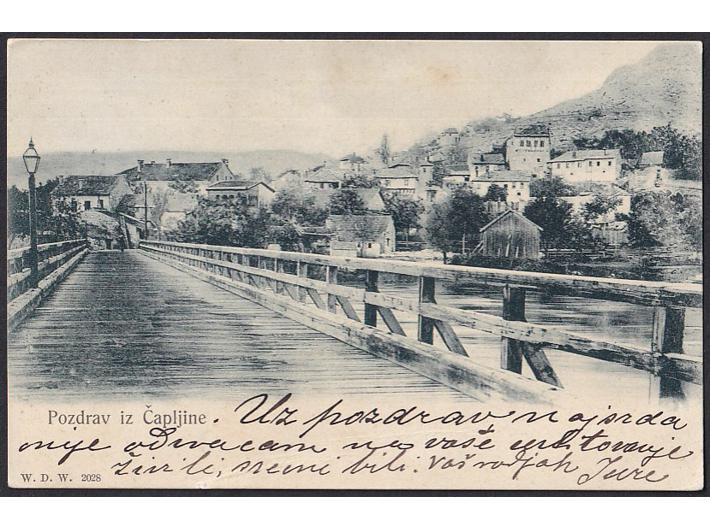 Pozdrav iz Čapljine. Uz pozdrav najsrda
nije odvraćam na vaše
živili, sretni bili. Vaš rodjak Jure
W. D. W. 2028